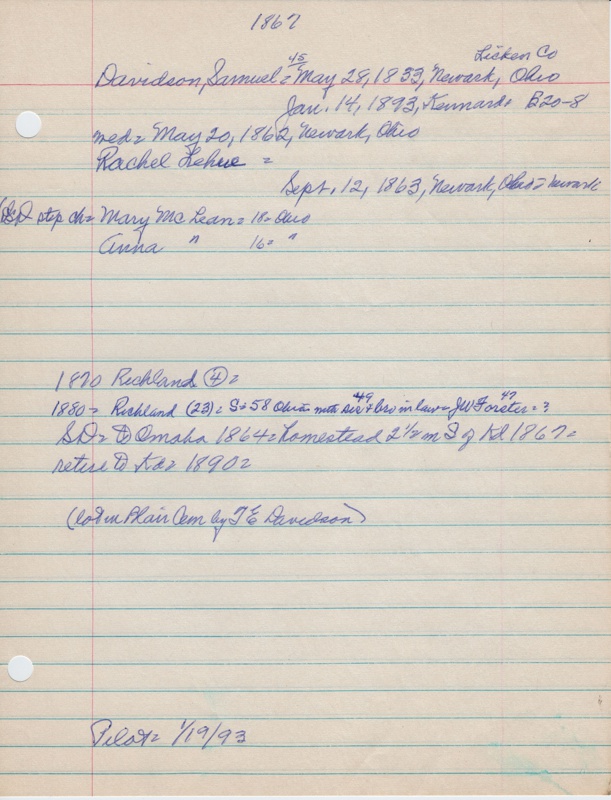 1867
Licken Co
45
Davidson, Samuel = May 28, 1833, Newark, Ohio
Jan. 14, 1893, Kennard + B20-8
med = May 20, 1862, Newark, Ohio
Rachel Lehue =
Sept. 12, 1863, Newark, Ohio = Newark
step ch = Mary McLean = 18 = Ohio
Anna " 16 = "
1870 Richland (4) =
49 47
1880 = Richland (23) = S + 58 Ohio = with sis + bro in law = JW Forster = ?
SD = to Omaha 1864 = homestead 2½ m S of Kd 1867 =
retire to Kd = 1890 =
(lot in Blair Cem by T E Davidson)
Pilot = 1/19/93